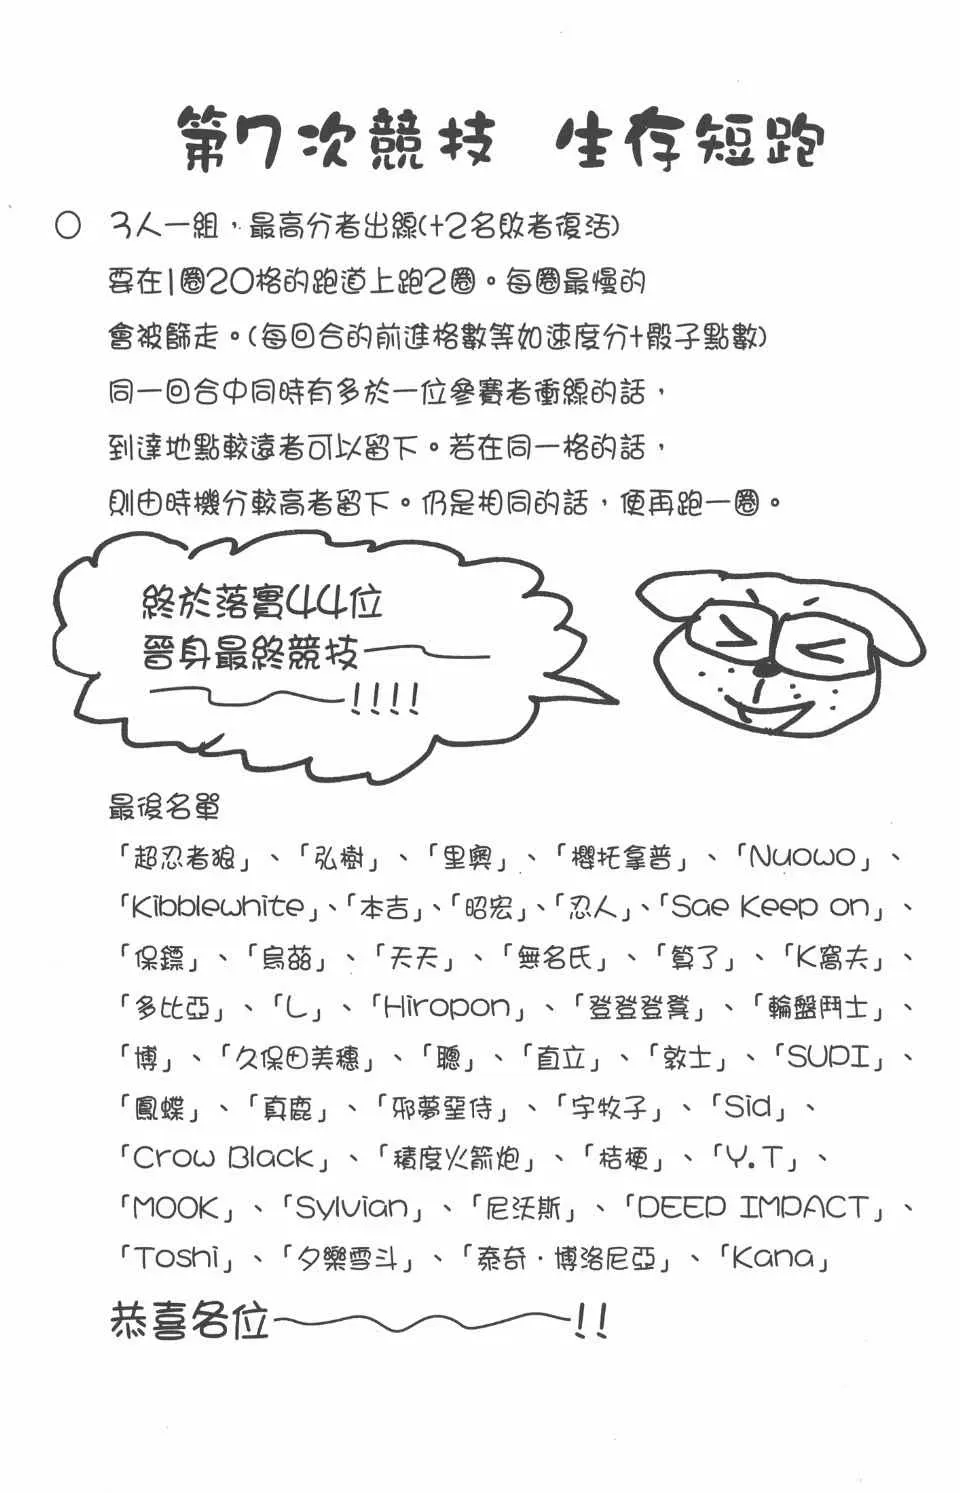 第7次競技 生存短跑
○ 3人一組，最高分者出線(+2名敗者復活)
要在1圈20格的跑道上跑2圈。每圈最慢的
會被篩走。(每回合的前進格數等如速度分+骰子點數)
同一回合中同時有多於一位參賽者衝線的話，
到達地點較遠者可以留下。若在同一格的話，
則由時機分較高者留下。仍是相同的話，便再跑一圈。
終於落實44位
晉身最終競技——
——!!!!
最後名單
「超忍者狼」、「弘樹」、「里奧」、「櫻托拿普」、「Nuowo」、
「Kibblewhite」、「本吉」、「昭宏」、「忍人」、「Sae Keep on」、
「保鏢」、「烏茲」、「天天」、「無名氏」、「算了」、「K窩夫」、
「多比亞」、「L」、「Hiropon」、「登登登凳」、「輪盤鬥士」、
「博」、「久保田美穗」、「聰」、「直立」、「敦士」、「SUPI」、
「鳳蝶」、「真鹿」、「邪夢堊侍」、「字牧子」、「Sid」、
「Crow Black」、「積度火箭炮」、「桔梗」、「Y.T」、
「MOOK」、「Sylvian」、「尼沃斯」、「DEEP IMPACT」、
「Toshi」、「夕樂雪斗」、「泰奇·博洛尼亞」、「Kana」
恭喜各位——!!